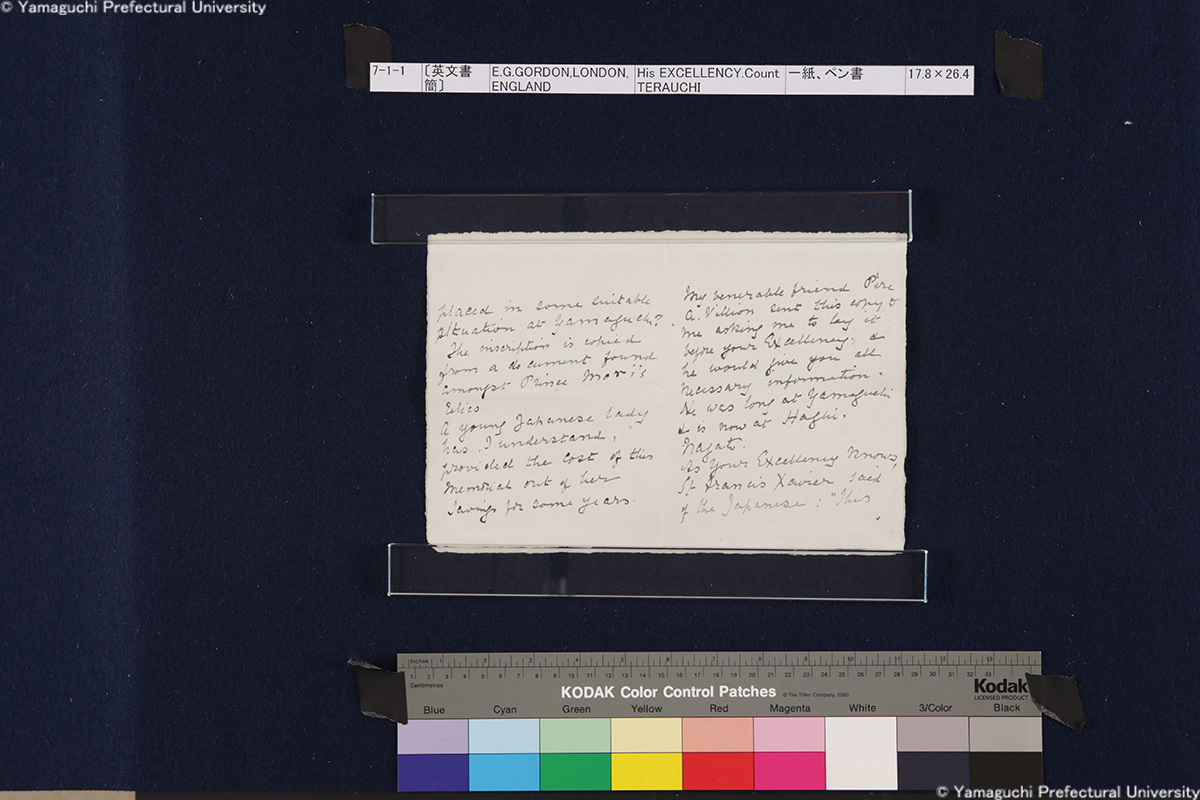 © Yamaguchi Prefectural University
7-1-1
〔英文書
簡〕
E.G.GORDON,LONDON,
ENGLAND
His EXCELLENCY.Count
TERAUCHI
一紙、ペン書
17.8×26.4
placed in some suitable
situation at Yamaguchi?
The inscription is copied
from a document found
amongst Prince Moris
A young Japanese lady
has, I understand,
provided the cost of this
Memorial out of her
savings for some years.
My venerable friend Père
A. Villion sent this copy t
me asking me to lay it
before your Excellency, &
he would give you all
necessary information.
He was long at Yamaguchi
& is now at Haghi.
Nagato.
As Your Excellency knows,
St Francis Xavier said
of the Japanese: "This
Inches 1 2 3 4 5 6 7 8 9 10 11 12 13
Centimetres 1 2 3 4 5 6 7 8 9 10 11 12 13 14 15 16 17 18 19 20 21 22 23 24 25 26 27 28 29 30 31 32 33
KODAK Color Control Patches © The Tiffen Company, 2000
Kodak
LICENSED PRODUCT
Blue Cyan Green Yellow Red Magenta White 3/Color Black
© Yamaguchi Prefectural University